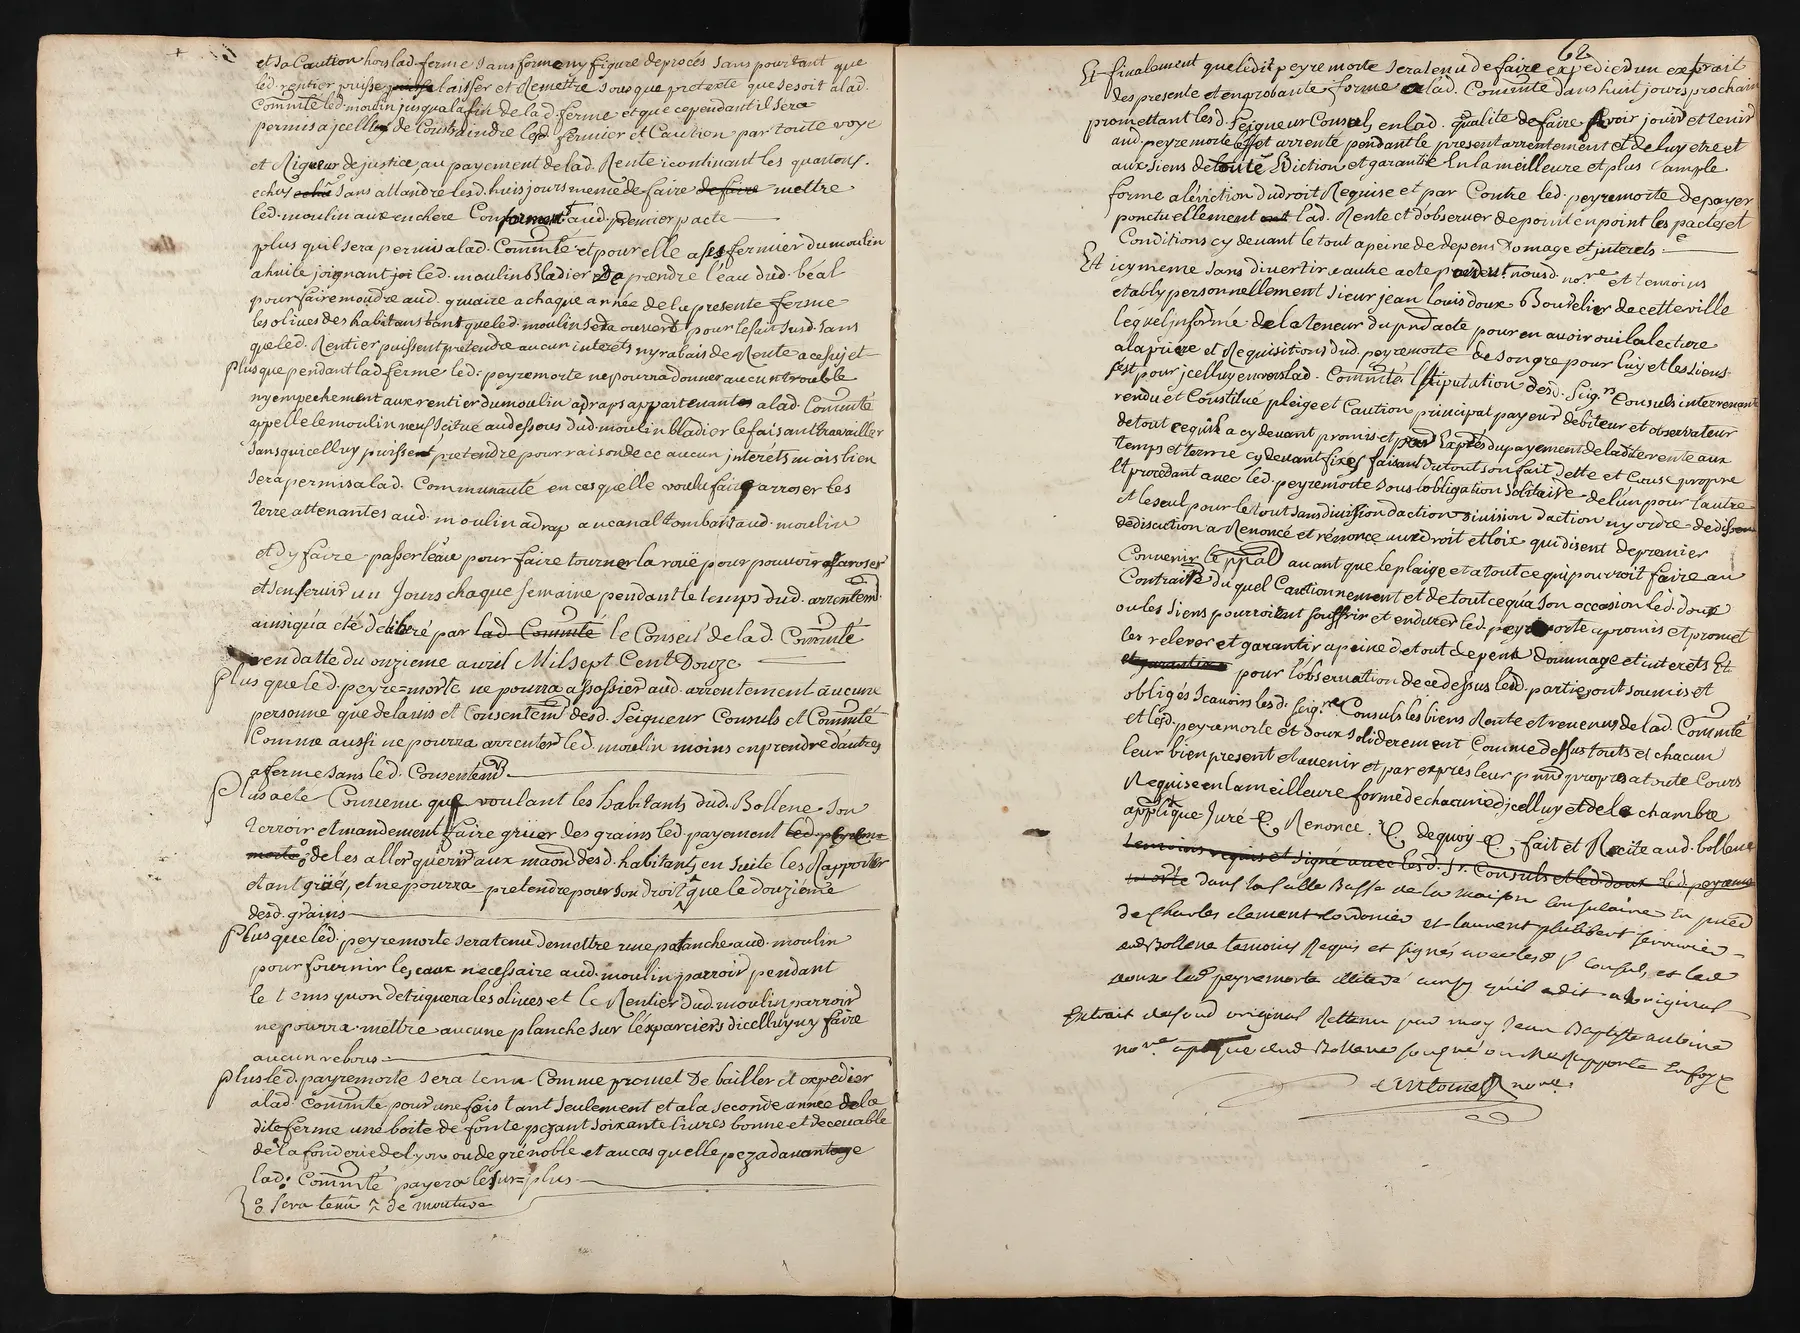 et sa Caution hors lad. ferme sans forme ny figure de procés sans pourtant que
led. rentier puisse puisse laisser et Remettre sous que pretexte que se soit a lad.
Commté led. moulin jusqua la fin de lad. ferme et que cependant il sera
permis a jcelle de Constraindre led. fermier et Caution par toute voye
et Rigueur de justice, au payement de lad. Rente icontinant les quartons
echus echû sans attandre lesd. huis jours meme de faire de faire mettre
led. moulin aux enchere Conformemt aud. premier pacte
plus quil sera permis a lad. Commté et pour elle a ses fermier du moulin
a huile joignant led. moulin Bladier de prendre l'eau dud. béal
pour faire moudre aud. quaire a chaque année de la presente ferme
les olives des habitans tant que led. moulin sera ouvert pour le fait susd. sans
que led. Rentier puissent pretendre aucun interets ny rabais de Rente a ce sujet
Plus que pendant lad ferme led. peyremorte ne pourra donner aucun trouble
ny empechement aux rentier du moulin a draps appartenantes a lad. Commté
appellé le moulin neuf scitué audessous dud. moulin bladier le faisant travailler
sans qu'icelluy puissent pretendre pour raison de ce aucun jnterets mais bien
sera permis a lad. Communauté en cas qu'elle voulu faire arroser les
terre attenantes aud. moulin a drap au canal tombant aud. moulin
et d'y faire passer l'eau pour faire tourner la roüe pour pouvoir arroser
et s'en servir un Jours chaque semaine pendant le temps dud. arrentemt.
ainsi qu'a eté deliberé par lad. Commté le Conseil de lad. Commté
en datte du onzieme avril Mil sept Cent Douze
Plus que led. peyre=morte ne pourra assossier aud. arrentement aucune
personne que de lavis et Consentemt desd. Seigneur Consuls et Commté
Comme aussi ne pourra arrenter led. moulin moins en prendre d'autres
a ferme sans led. Consentemt.
Plus a eté Convenu que voulant les habitants dud. Bollene son
terroir et mandement faire grüer des grains led. payement led. peyre=
morte o/o de les aller querir aux maon desd. habitants en suite les Rapporter
etant grüés, et ne pourra pretendre pour son droit ^ que le douzième
desd. grains
Plus que led. peyremorte sera tenu de mettre une patanche aud. moulin
pour fournir les eaux necessaire aud. moulin parroir pendant
le tems qu'on detriquera les olives et le Rentier dud. moulin parroir
ne pourra mettre aucune planche sur l'exparciers dicelluy ny faire
aucun rebous
plus led. payremorte sera tenu Comme promet de bailler et expedier
a lad. Commté pour une fois tant seulement et a la seconde année de la
dite ferme une boite de fonte pezant soixante livres bonne et recevable
de la fonderie de lyon ou de grénoble et au cas quelle peza davantage
lad. Commté payera le sur=plus
o/o sera tenu ^ de mouture
62
Et finalement que ledit peyremorte sera tenu de faire expedier un extrait
des presente et en probante forme a lad. Comenté dans huit jours prochain
promettant lesd. Seigneur Consuls en lad. qualité de faire avoir jouir et tenir
aud. peyremorte led. arrenté pendant le present arrentement et de luy etre et
aux siens de toute Eviction et garantie En la meilleure et plus ample
forme a l'eviction du droit Requise et par Contre led. peyremorte de payer
ponctuellement lad. Rente et d'observer de point en point les pactes et
Conditions cy devant le tout a peine de depens domage et jnterets
Et icy meme sans divertir a autre acte pardevt. nousd. nore et temoins
etably personnellement Sieur jean louis doux Bourelier de cette ville
lequel jnformé de la teneur du pnd acte pour en avoir oui la lecture
a la priere et Requisitions dud. peyremorte de son gre pour luy et les siens
s'est pour jcelluy envers lad. Commté stipulation desd. Sigrs Consuls intervenante
rendu et Constitue pleige et Caution principal payeur debiteur et observateur
de tout ce qu'il a cy devant promis et par Exprés du payement de ladite rente aux
temps et terme cy devant fixés faisant du tout son fait dette et Cause propre
Et procedant avec led. peyremorte sous lobligation solitaire de l'un pour l'autre
et le seul pour le tout sans division daction division d'action ny ordre de
de discution a Renoncé et rénonce aux droit et loix qui disent de premier
Convenir le ppal avant que le plaige et a tout ce qui pourroit faire au
Contraire duquel Cautionnement et de tout ce qu'a son occasion led. doux
ou les siens pourroient souffrir et endurer led. peyremorte a promis et promet
les relever et garantir a peine de tout depens dommage et interets Et
et garantire pour l'observation de ce dessus lesd. parties ont soumis et
obligés scavoirs lesd. Seigre Consuls les biens Rente et revenus de lad. Commté
et led. peyremorte et doux soliderement Comme dessus touts et chacun
leur bien present et avenir et par expres leur pnnes propres a toute Cours
Requise en la meilleure forme de chacune d'jcelluy et de la chambre
applique Juré &. Renonce. &. dequoy &. fait et Recite aud. bollene
temoins requis et signé avec lesd. Sr. Consuls et led. doux led. peyre
morte dans la Salle Basse de la maison Consulaire En pnce
de Charles clement Cordonier et laurent philibert serrurier
aud Bollene temoins Requis et signés avec lesd. Sr Consuls et led
doux led peyremorte illiteré ainsy quil a dit a loriginal
Extrait desond original Rettenu par moy Jean Baptiste antoine
nore aplique aud Bollene soussigné En foy &
Antoine nore.